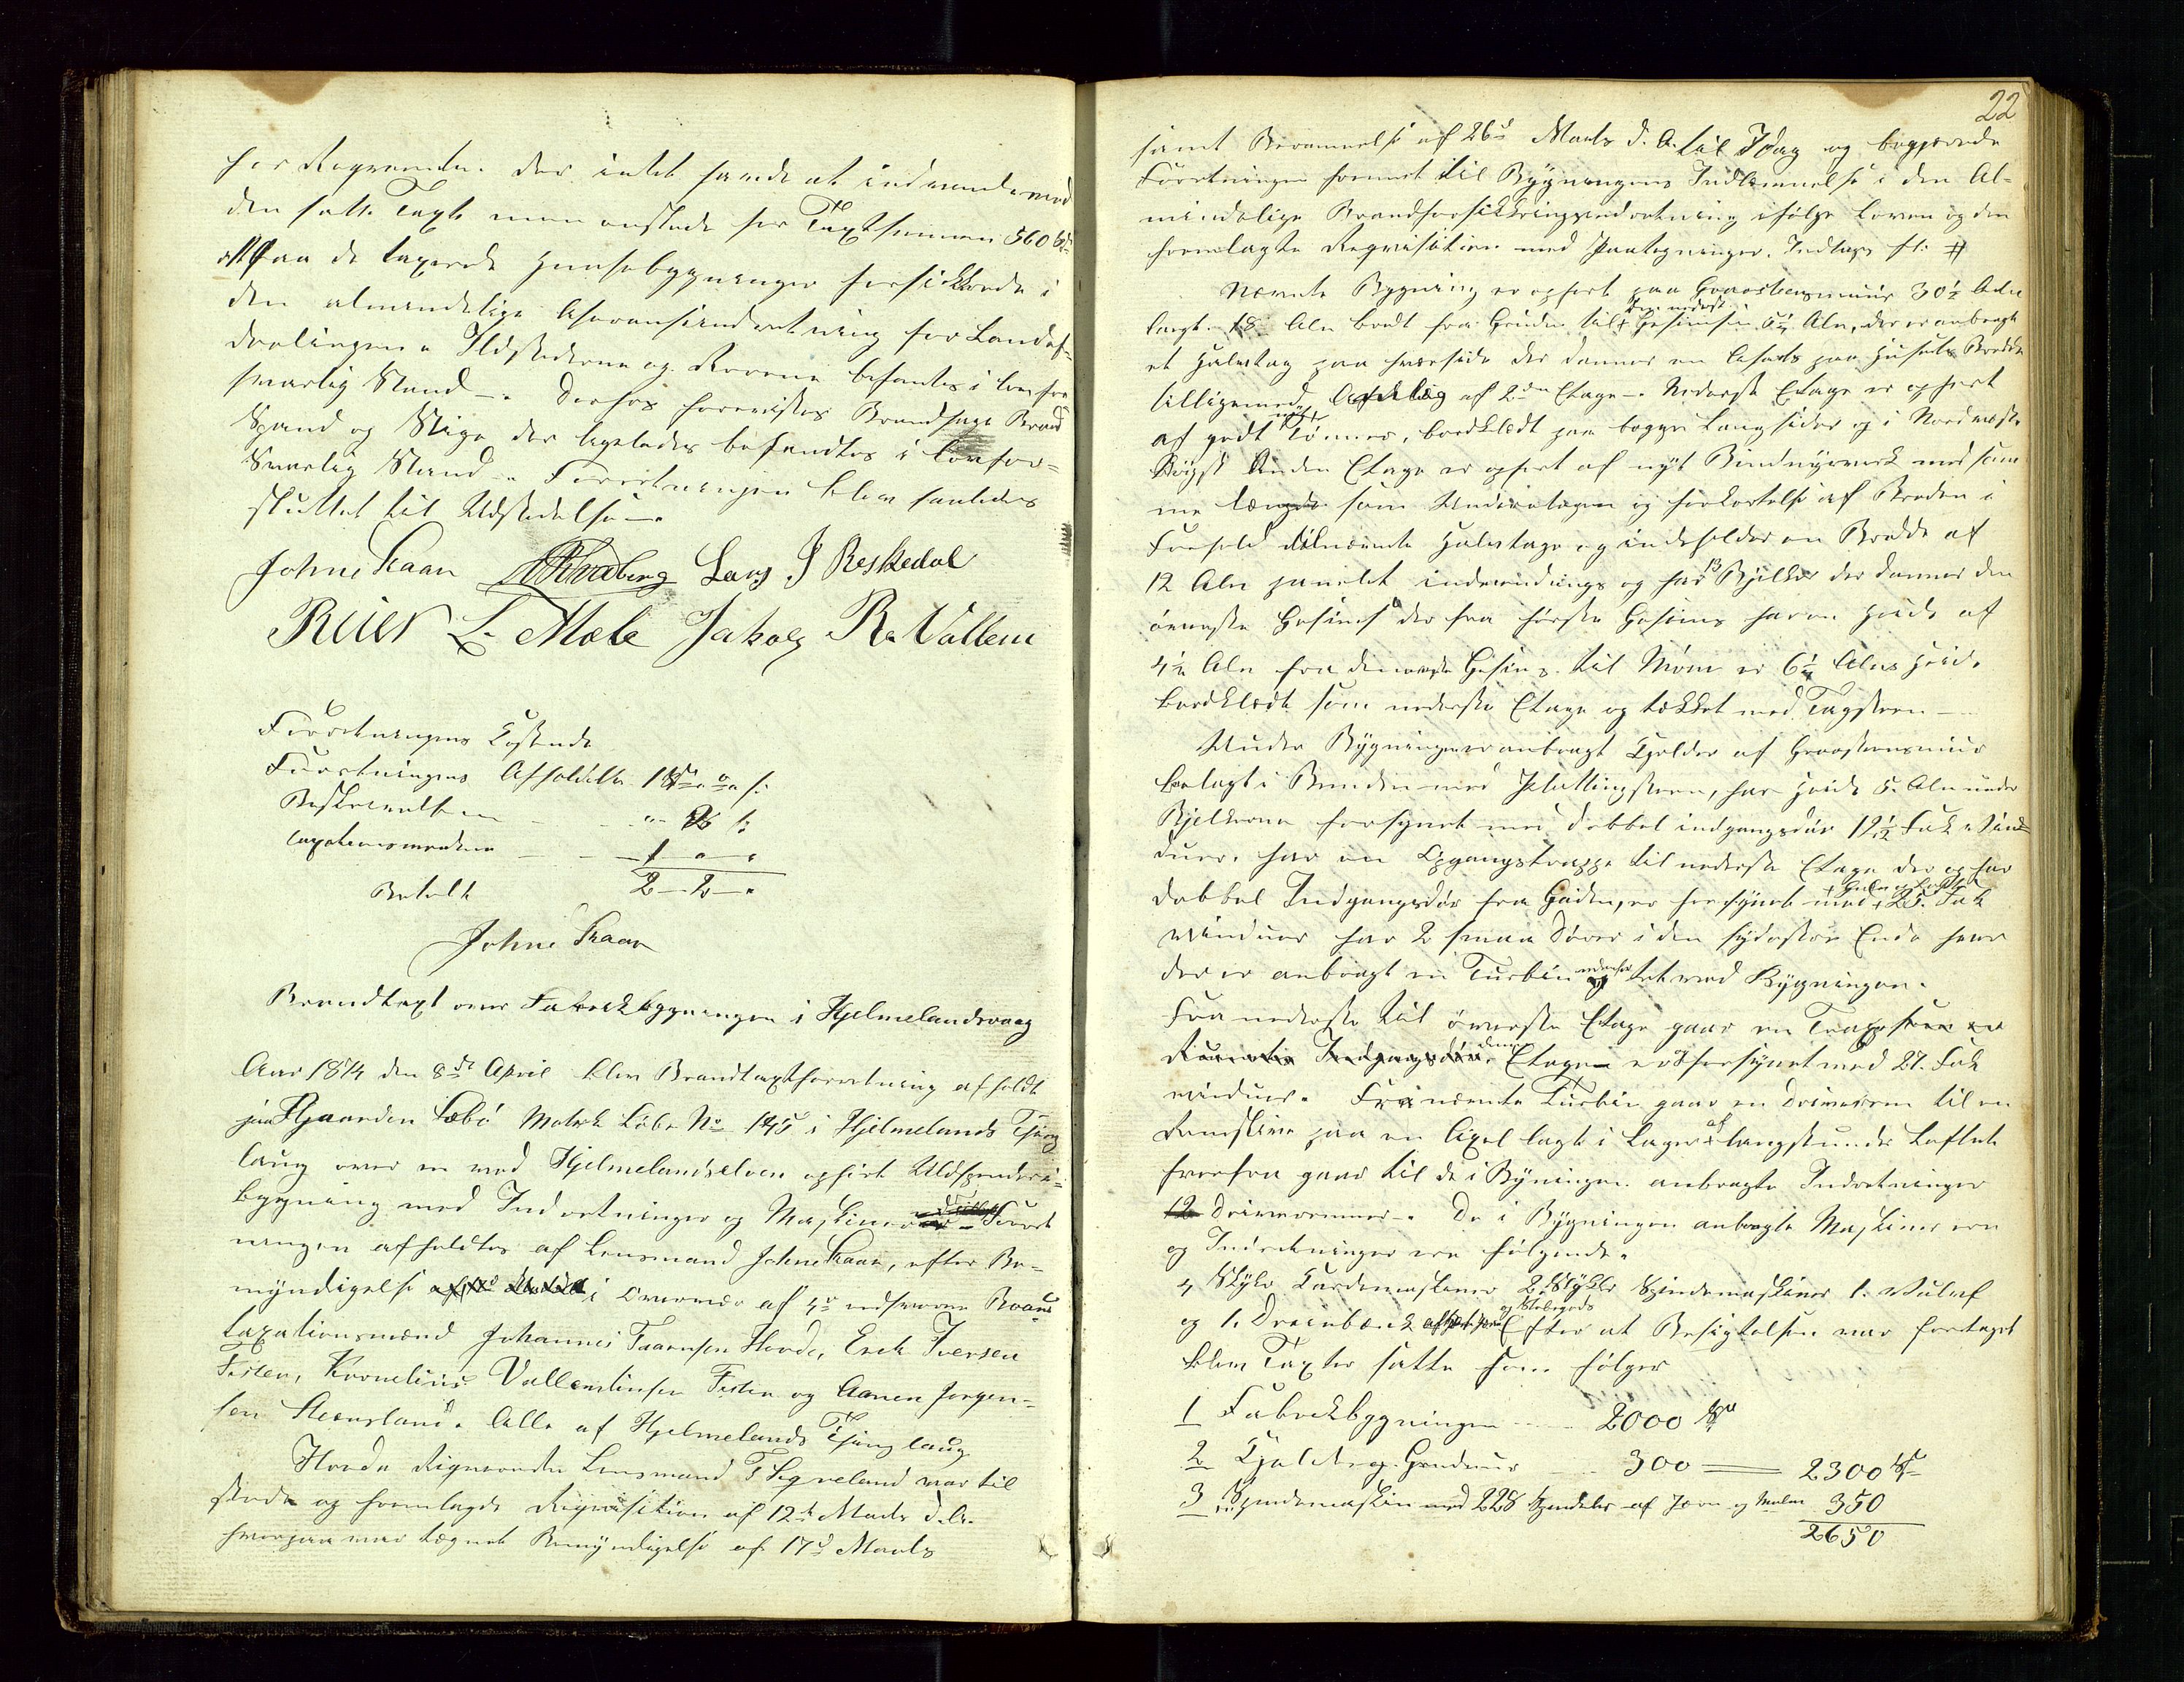 for Reqvirenten. Der intet havde at indvende mod
den satte Taxt men ønskede for Taxtsummen 560 Spd
at faa de taxerede Huusebygninger forsikkrede i
den almindelige Assuranceindretning for Landdis-
Ildstederne og Rørene befantes i forsva-
svarlig Stand. Derhos forevistes Brandhage Brand
Spand og Stige der ligeledes befandtes i forsvar=
svarlig Stand. Forretningen blev saaledes
sluttet til Udstedelse.
Johne Skaar Lars J Reskedal
Reier L. Mæle Jakob R. Vallem
Forretningens Kostende
Forretningens Afholdelse 1
Beskrivelsen
Taxationsmændene 1
Betalt 2 - 2 -
Johne Skaar
Brandtaxt over Fabrikbygningen i Hjelmelandsvaag
Aar 1874 den 8de April blev Brandtaxtforretning afholdt
paa Gaarden Sæbø Matrik Løbe No 145 i Hjelmelands Thing
laug over en ved Hjelmelandselven opført Uldspinderi-
bygning med Indretninger og Maskiner Forret
ningen afholdtes af Lensmand Johne Skaar, efter Be-
myndigelse i Overvær af 4re edsvorne Brand
taxationsmænd Johannes Taarnsen Hovda, Erik Iversen
Fister, Kornelius Vallentinsen Fister og Aanen Jørgen-
sen Steensland. Alle af Hjelmelands Thinglaug
Hvorda Reqvirenten Lensmand T Segneland var til
stede og fremlagde Reqvisition af 12te Marts d.A.
hvorpaa var tegnet Bemyndigelse af 17de Marts
22
samt Berammelse af 26de Marts d. A. til Idag og begjærede
Forretningen fremmet til Bygningens Indlemmelse i den Al-
mindelige Brandforsikkringsindretning ifølge Loven og den
fremlagte Reqvisition med Paategninger. Indtages sl: #
Nævnte Bygning er opført paa Graastensmuur 30½ Alen
langt 18 Alen bredt fra Grunden til Gesimsen 5½ Alen, der er anbragt
et Halvtag paa hverside der danner en Afsats paa Husets Bredde
tilligemed af 2den Etage. Nederste Etage er opført
af godt nyt Tømmer, bordklædt paa begge Langsider og i Nordvest
Anden Etage er opført af nyt Bindingsverk med sam
me længde som Underetagen og forkortelse af Breden i
Forhold til nævnte Halvtage og indeholder en Bredde af
12 Alen panelet indvendings og har 13 Bjelker der danner den
øverste Gesims der fra første Gesims har en Høide af
4½ Alen fra den øverste Gesims til Mønne er 6¼ Alens Høide.
bordklædt som nederste Etage og tækket med Tagsteen
Under Bygningen er anbragt Kjelder af Graastensmuur
belagt i Bunden med Pflastringsteen, har Høide 5. Alen under
Bjelkerne forsynet med dobbel indgangsdør 19½ Fak Vin
duer. har en Opgangstrappe til nederste Etage der og har
dobbel Indgangsdør fra Gaden, er forsynet med 25. Fak
vinduer har 2 smaa Dører i den sydøstre Ende hvor
der er anbragt en Turbin tet ved Bygningen.
Fra nederste til øverste Etage gaar en Trappe
denne Etage er forsynet med 27. Fak
vinduer. Fra nævnte Turbin gaar en Driverem til en
Remskive paa en Axel lagt i Lager langs under Loftet
hvorfra gaar til de i Bygningen anbragte Indretninger
12 Driveremmer. De i Bygningen anbragte Maskinerier
og Indretninger ere følgende.
4 Stykr Kardemaskiner 2 Stykr Spindemaskiner 1. Vulf
og 1. Dreiebænk og Støbegods Efter at Besigtelsen var foretaget
blev Taxter satte som følger
1 Fabrikbygningen 2000 Spd
2 Kjelder og Grundmur 300 = 2300 Spd
3 Spindemaskin med 228 Spindeler af Jern og Malm 350
2650